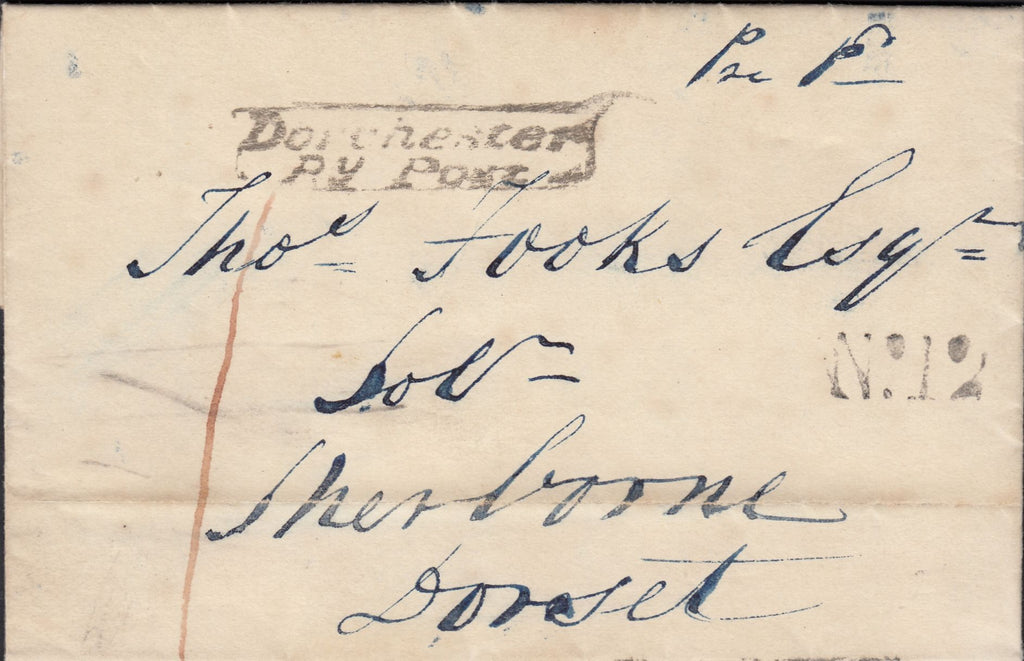 Pre Pd
Dorchester
Py Post
Thos Fooks Esqr
Solr
No. 12
Sherborne
Dorset